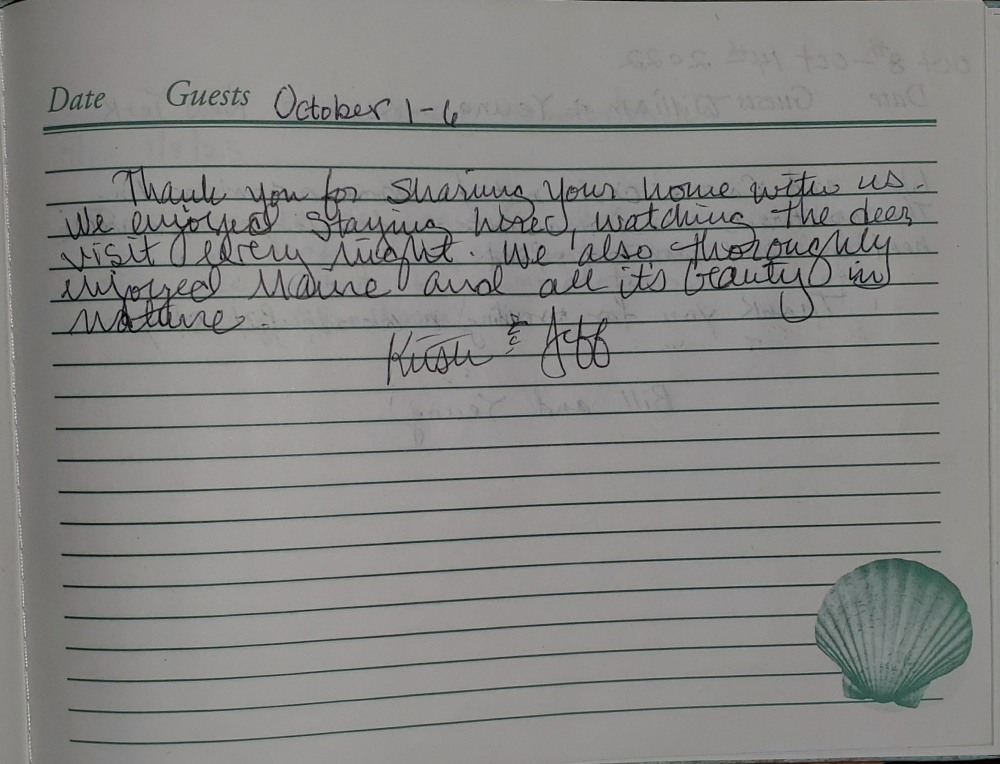 Date Guests October 1-6
Thank you for sharing your home with us.
We enjoyed staying here, watching the deer
visit every night. We also thoroughly
enjoyed Maine and all its beauty in
nature.
& Jeff